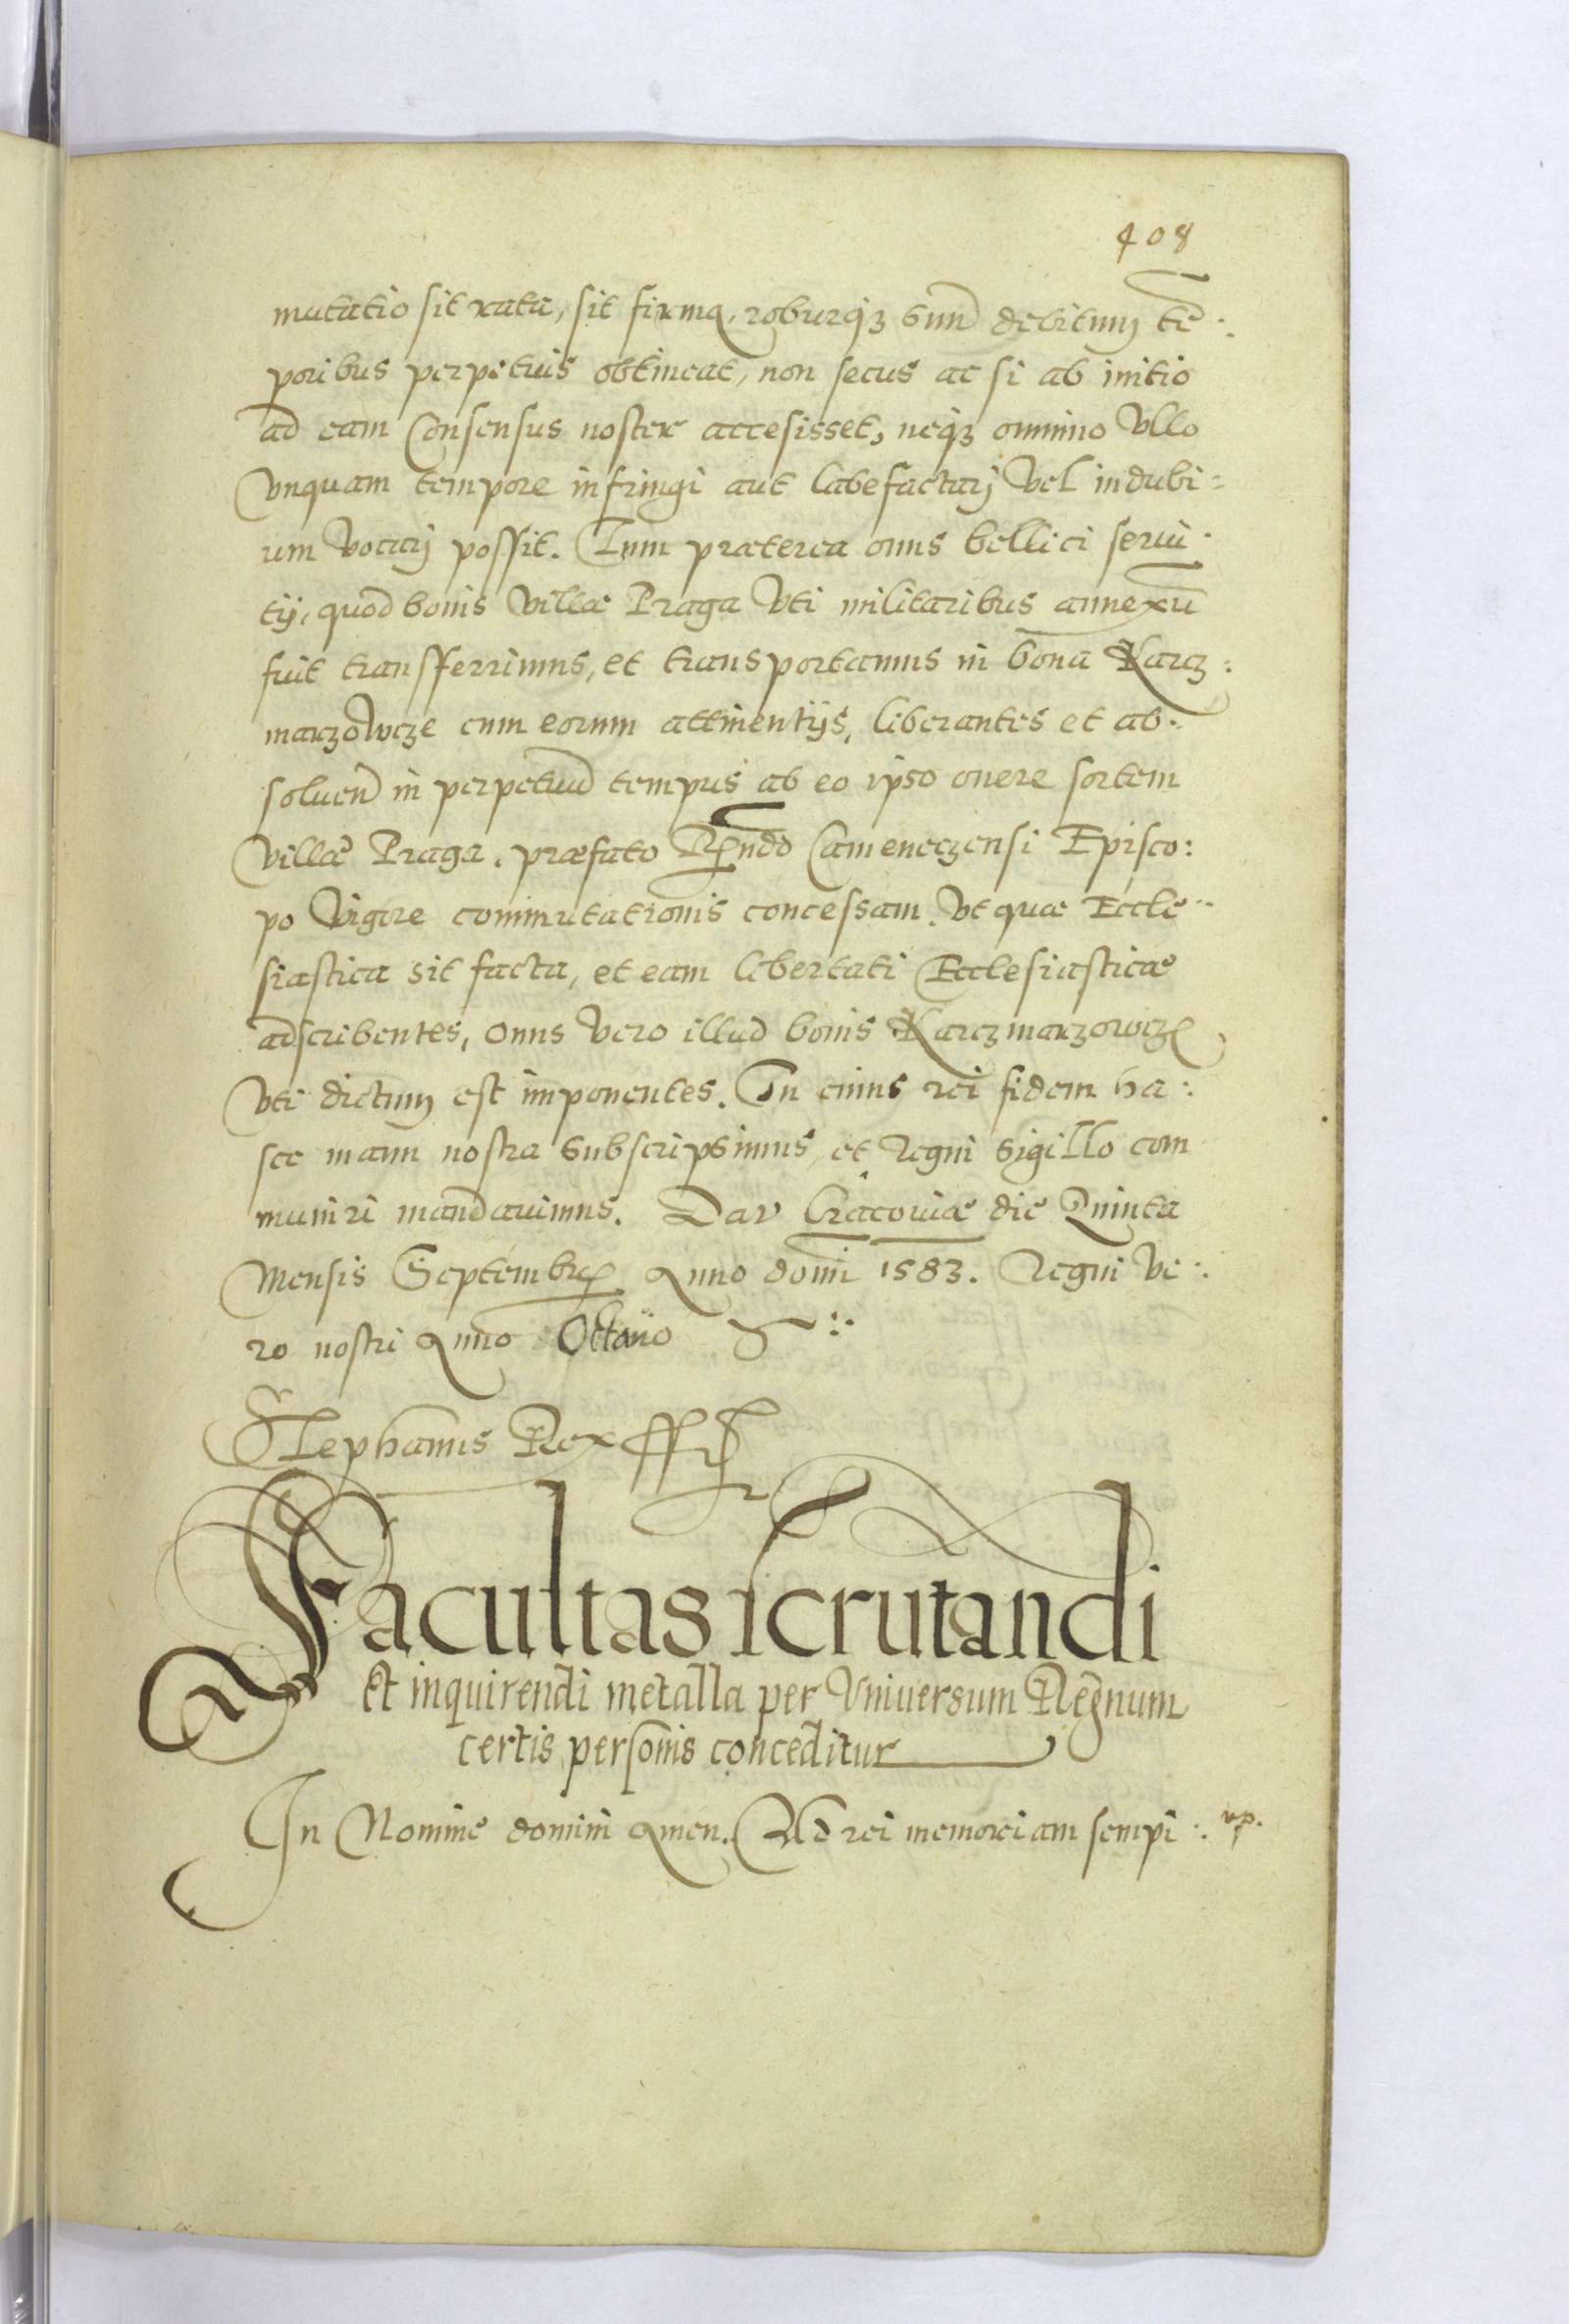 408
mutatio sit rata, sit firma, roburq3 suum debitum tē:
poribus perpetuis obtineat, non secus ac si ab initio
ad eam Consensus noster accesisset, neq3 omnino Vllo
Vnquam tempore infringi aut labefactarj Vel in dubi=
um Vocarj possit. Tum præterea onus bellici serui:
tij, quod bonis Villæ Praga Vti militaribus annexū
fuit transfferrimus, et transportamus in bona Karcz:
marzowcze cum eorum attinentijs, liberantes et ab:
soluen in perpetuū tempus ab eo ipso onere sortem
Villæ Praga, præfato Rndo Cameneczensi Episco:
po Vigore commutationis concessam. Vt quæ Eccle:
siastica sit facta, et eam libertati Ecclesiasticæ
adscribentes, Onus Vero illud bonis Karczmarzowcze
Vti dictum est imponentes. In cuius rei fidem ha:
sce manu nostra subscripsimus, et Regni sigillo com
muniri mandauimus. Dat Cracouiæ die Quinta
Mensis Septembris Anno domi 1583. Regni Ve:
ro nostri Anno Octauo
Stephanus Rex ssst
Facultas scrutandi
Et inquirendi metalla per Vniuersum Regnum
certis personis conceditur
In Nomine domini Amen. Ad rei memoriam sempi: vp.